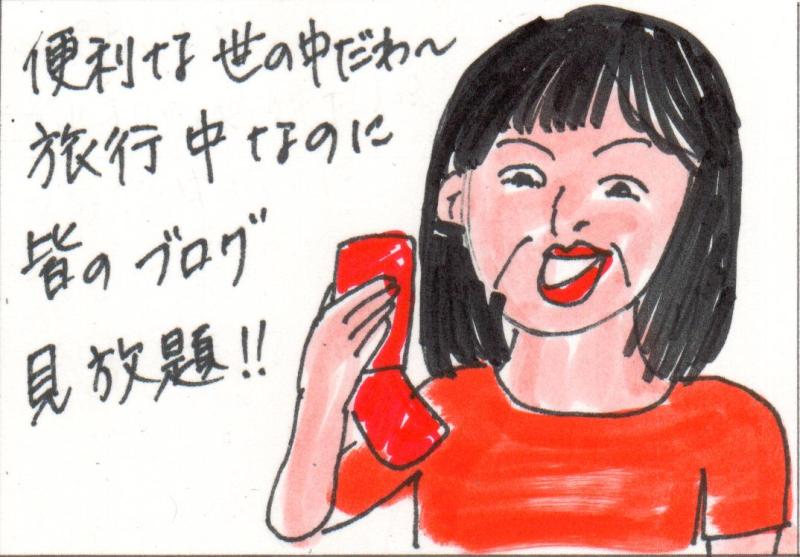 便利な世の中だわ〜
旅行中なのに
皆のブログ
見放題!!